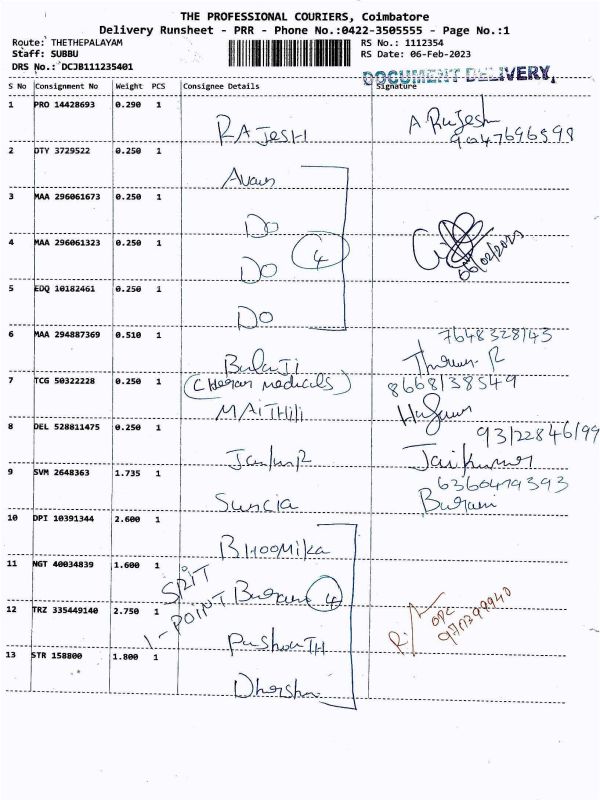 THE PROFESSIONAL COURIERS, Coimbatore
Delivery Runsheet - PRR - Phone No.:0422-3505555 - Page No.:1
Route: THETHEPALAYAM
Staff: SUBBU
DRS No.: DCJB111235401
RS No.: 1112354
RS Date: 06-Feb-2023
DOCUMENT DELIVERY.
S No Consignment No Weight PCS Consignee Details Signature
1 PRO 14428693 0.290 1
RAJESH A Rajesh
9047696598
2 DTY 3729522 0.250 1
3 MAA 296061673 0.250 1
Do
4 MAA 296061323 0.250 1
4
Do
06/02/2023
5 EDQ 10182461 0.250 1
Do
6 MAA 294887369 0.510 1
7648328143
BalaJi
7 TCG 50322228 0.250 1
(Cheran medicals) 8668138549
MAITHili
8 DEL 528811475 0.250 1
93122846199
Jaikumar
9 SVM 2648363 1.735 1
6360479393
10 DPI 10391344 2.600 1
BHOOMika
11 NGT 40034839 1.600 1
SPIT
1-POINT
4
12 TRZ 335449140 2.750 1
OPC
13 STR 158800 1.800 1